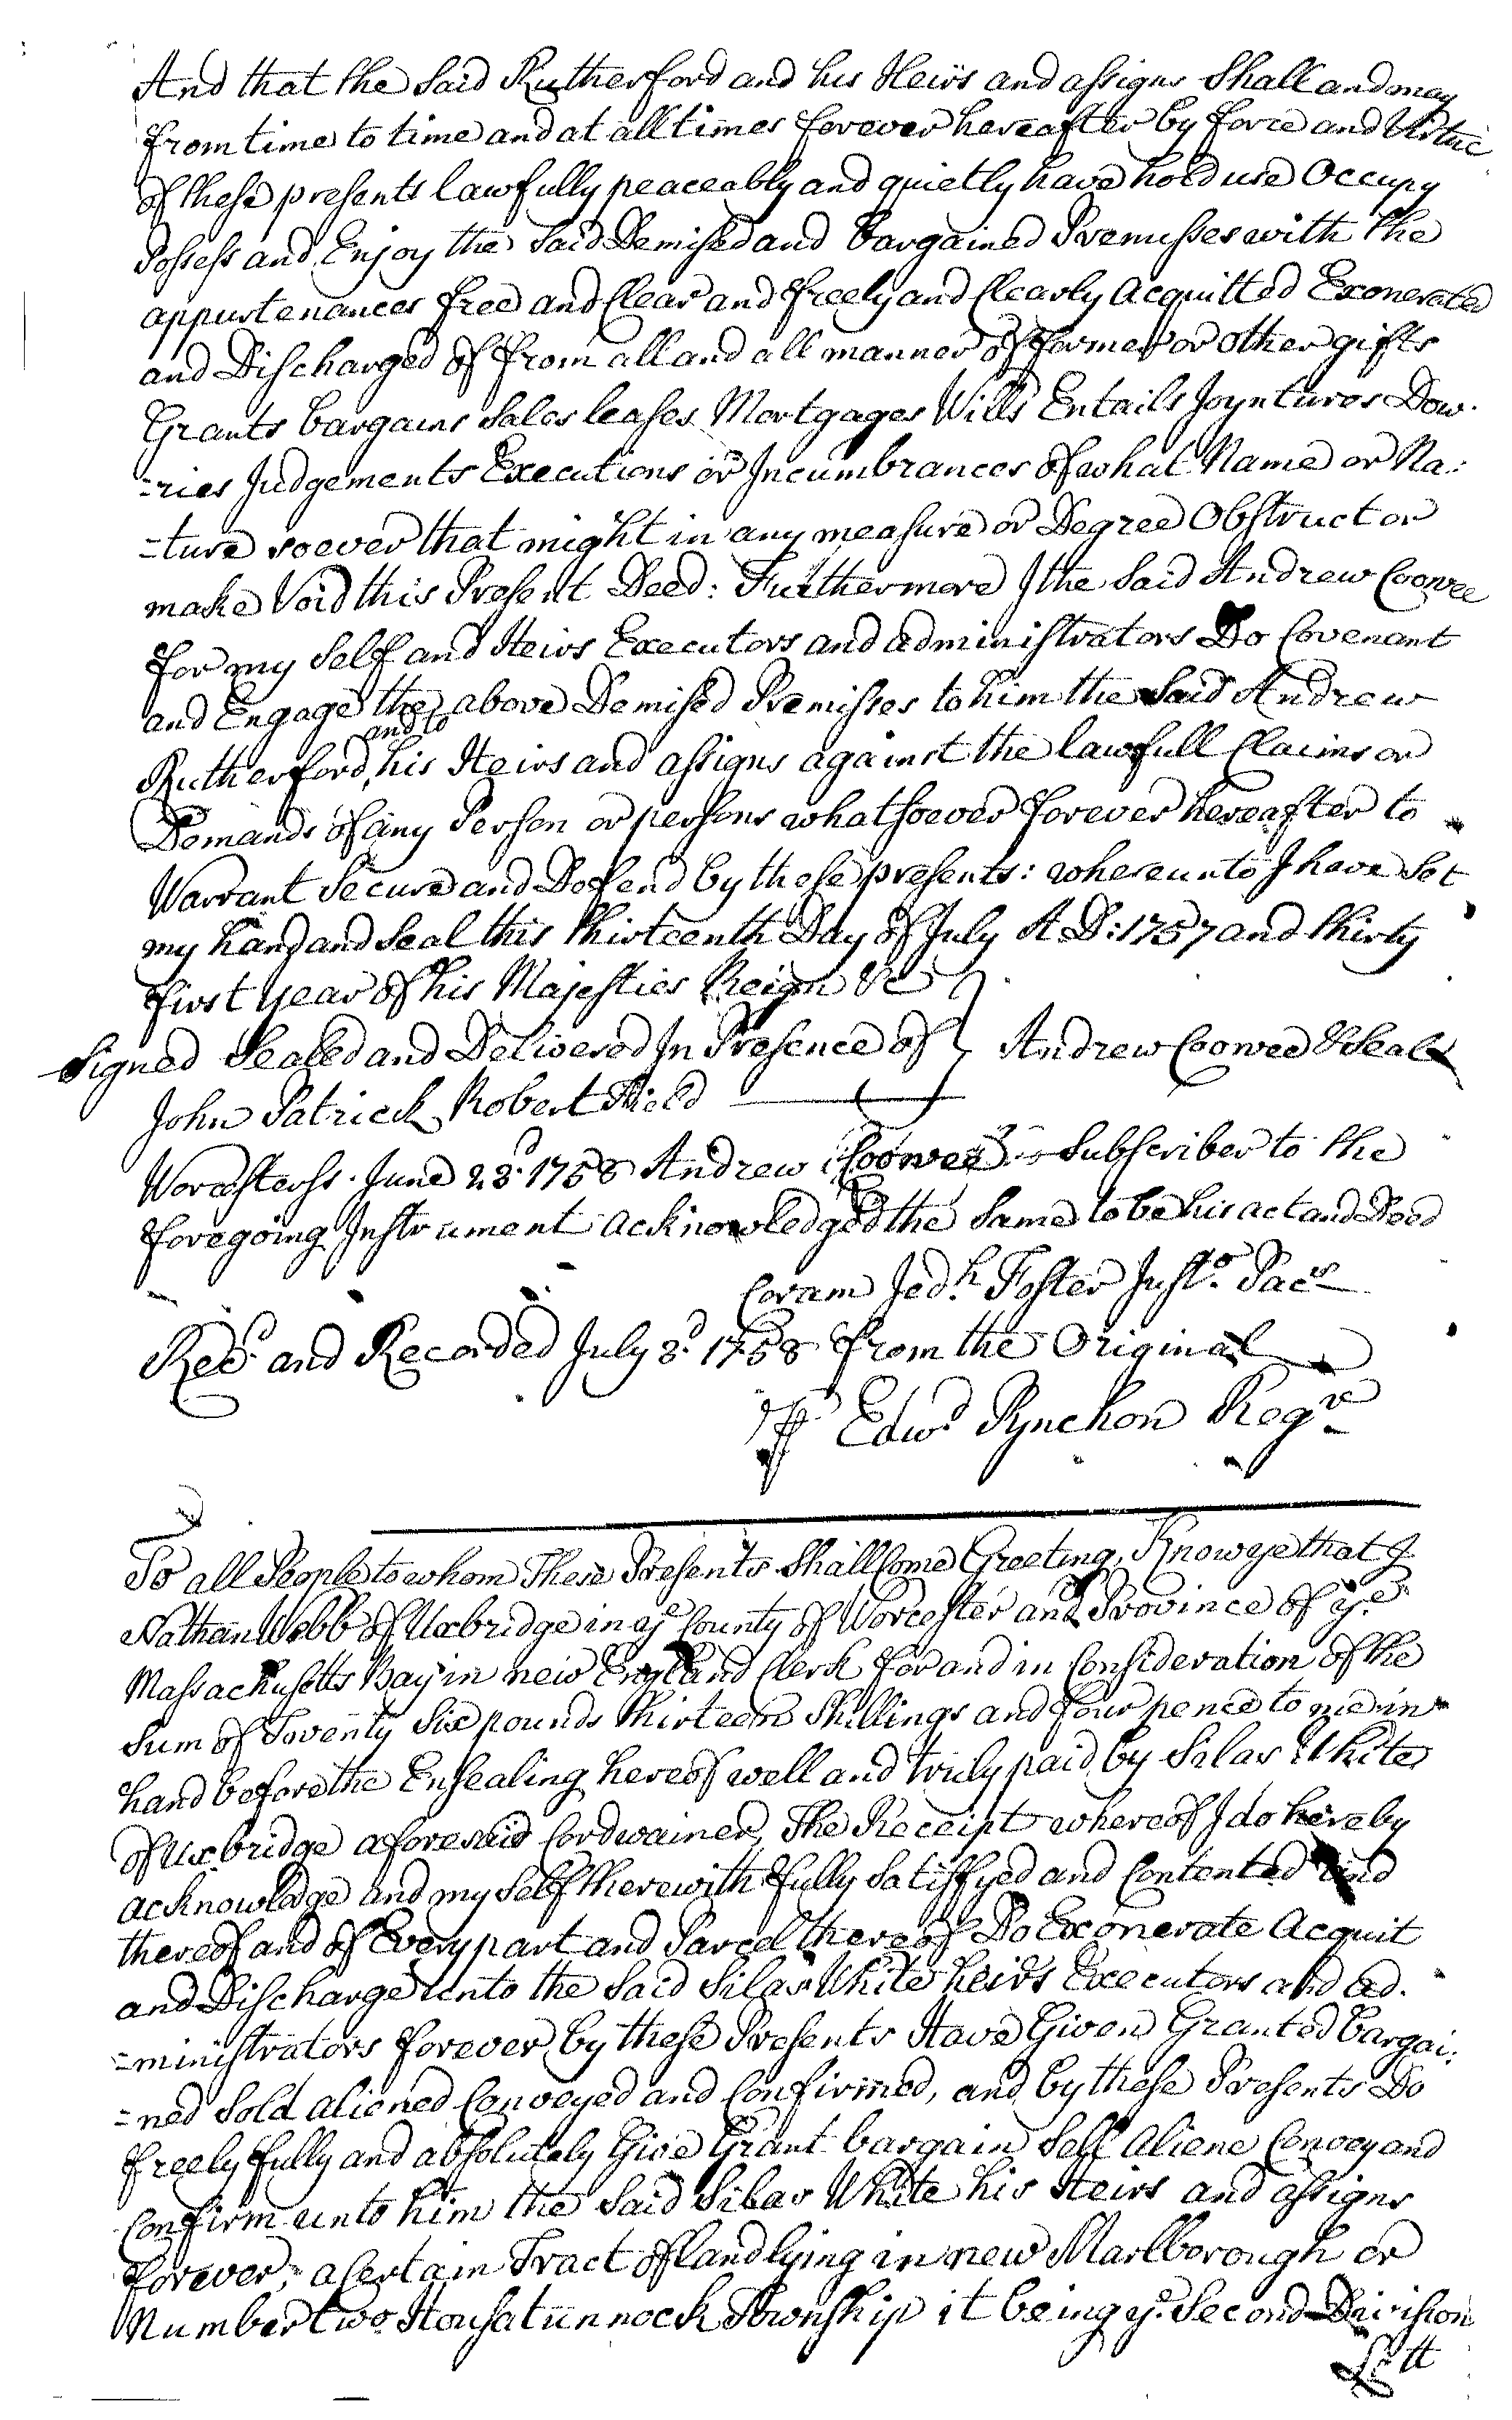 And that the Said Rutherford and his Heirs and assigns Shall and may
from time to time and at all times forever hereafter by force and Virtue
of these presents lawfully peaceably and quietly have hold use Occupy
Possess and Enjoy the Said Demised and bargained Premisses with the
appurtenances free and Clear and freely and Clearly Acquitted Exonerated
and Discharged of from all and all manner of former or other gifts
Grants bargains Sales leases Mortgages Wills Entails Joyntures Dow-
=ries Judgements Executions or Incumbrances of what Name or Na:
=ture soever that might in any measure or Degree Obstruct or
make Void this Present Deed: Furthermore I the Said Andrew Coowee
for my Self and Heirs Executors and administrators Do Covenant
and Engage the above Demised Premisses to him the Said Andrew
Rutherford and to his Heirs and assigns against the lawfull Claims or
Demands of any Person or persons whatsoever forever hereafter to
Warrant Secure and Defend by these presents: whereunto I have Set
my hand and Seal this Thirteenth Day of July A D: 1757 and thirty
first year of his Majesties Reign &c
Signed Sealed and Delivered In Presence of Andrew Coowee & Seal
John Patrick Robert Field
Worcesterss. June 23d. 1758 Andrew Coowee Subscriber to the
foregoing Instrument acknowledged the Same to be his act and Deed
Coram Jedh. Foster Justo. Pacs
Recd. and Recorded July 3d. 1758 from the Original
Edwd Pynchon Regr
To all People to whom These Presents Shall Come Greeting, Know ye that I
Nathan Webb of Uxbridge in ye County of Worcester and Province of ye
Massachusetts Bay in new England Clerk for and in Consideration of the
Sum of Twenty Six pounds thirteen Shillings and four pence to me in
hand before the Ensealing hereof well and truly paid by Silas White
of Uxbridge aforesaid Cordwainer, The Receipt whereof I do hereby
acknowledge and my Self therewith fully Satisfyed and Contented and
thereof and of Every part and Parcel thereof Do Exonerate Acquit
and Discharge unto the Said Silas White heirs Executors and ad.
=ministrators forever by these Presents Have Given Granted bargai:
=ned Sold aliened Conveyed and Confirmed, and by these Presents Do
freely fully and absolutely Give Grant bargain Sell Aliene Convey and
Confirm unto him the Said Silas White his Heirs and assigns
forever, a Certain Tract of land lying in new Marlborough or
Number two Housatunnock Township it being ye. Second Division
Lott